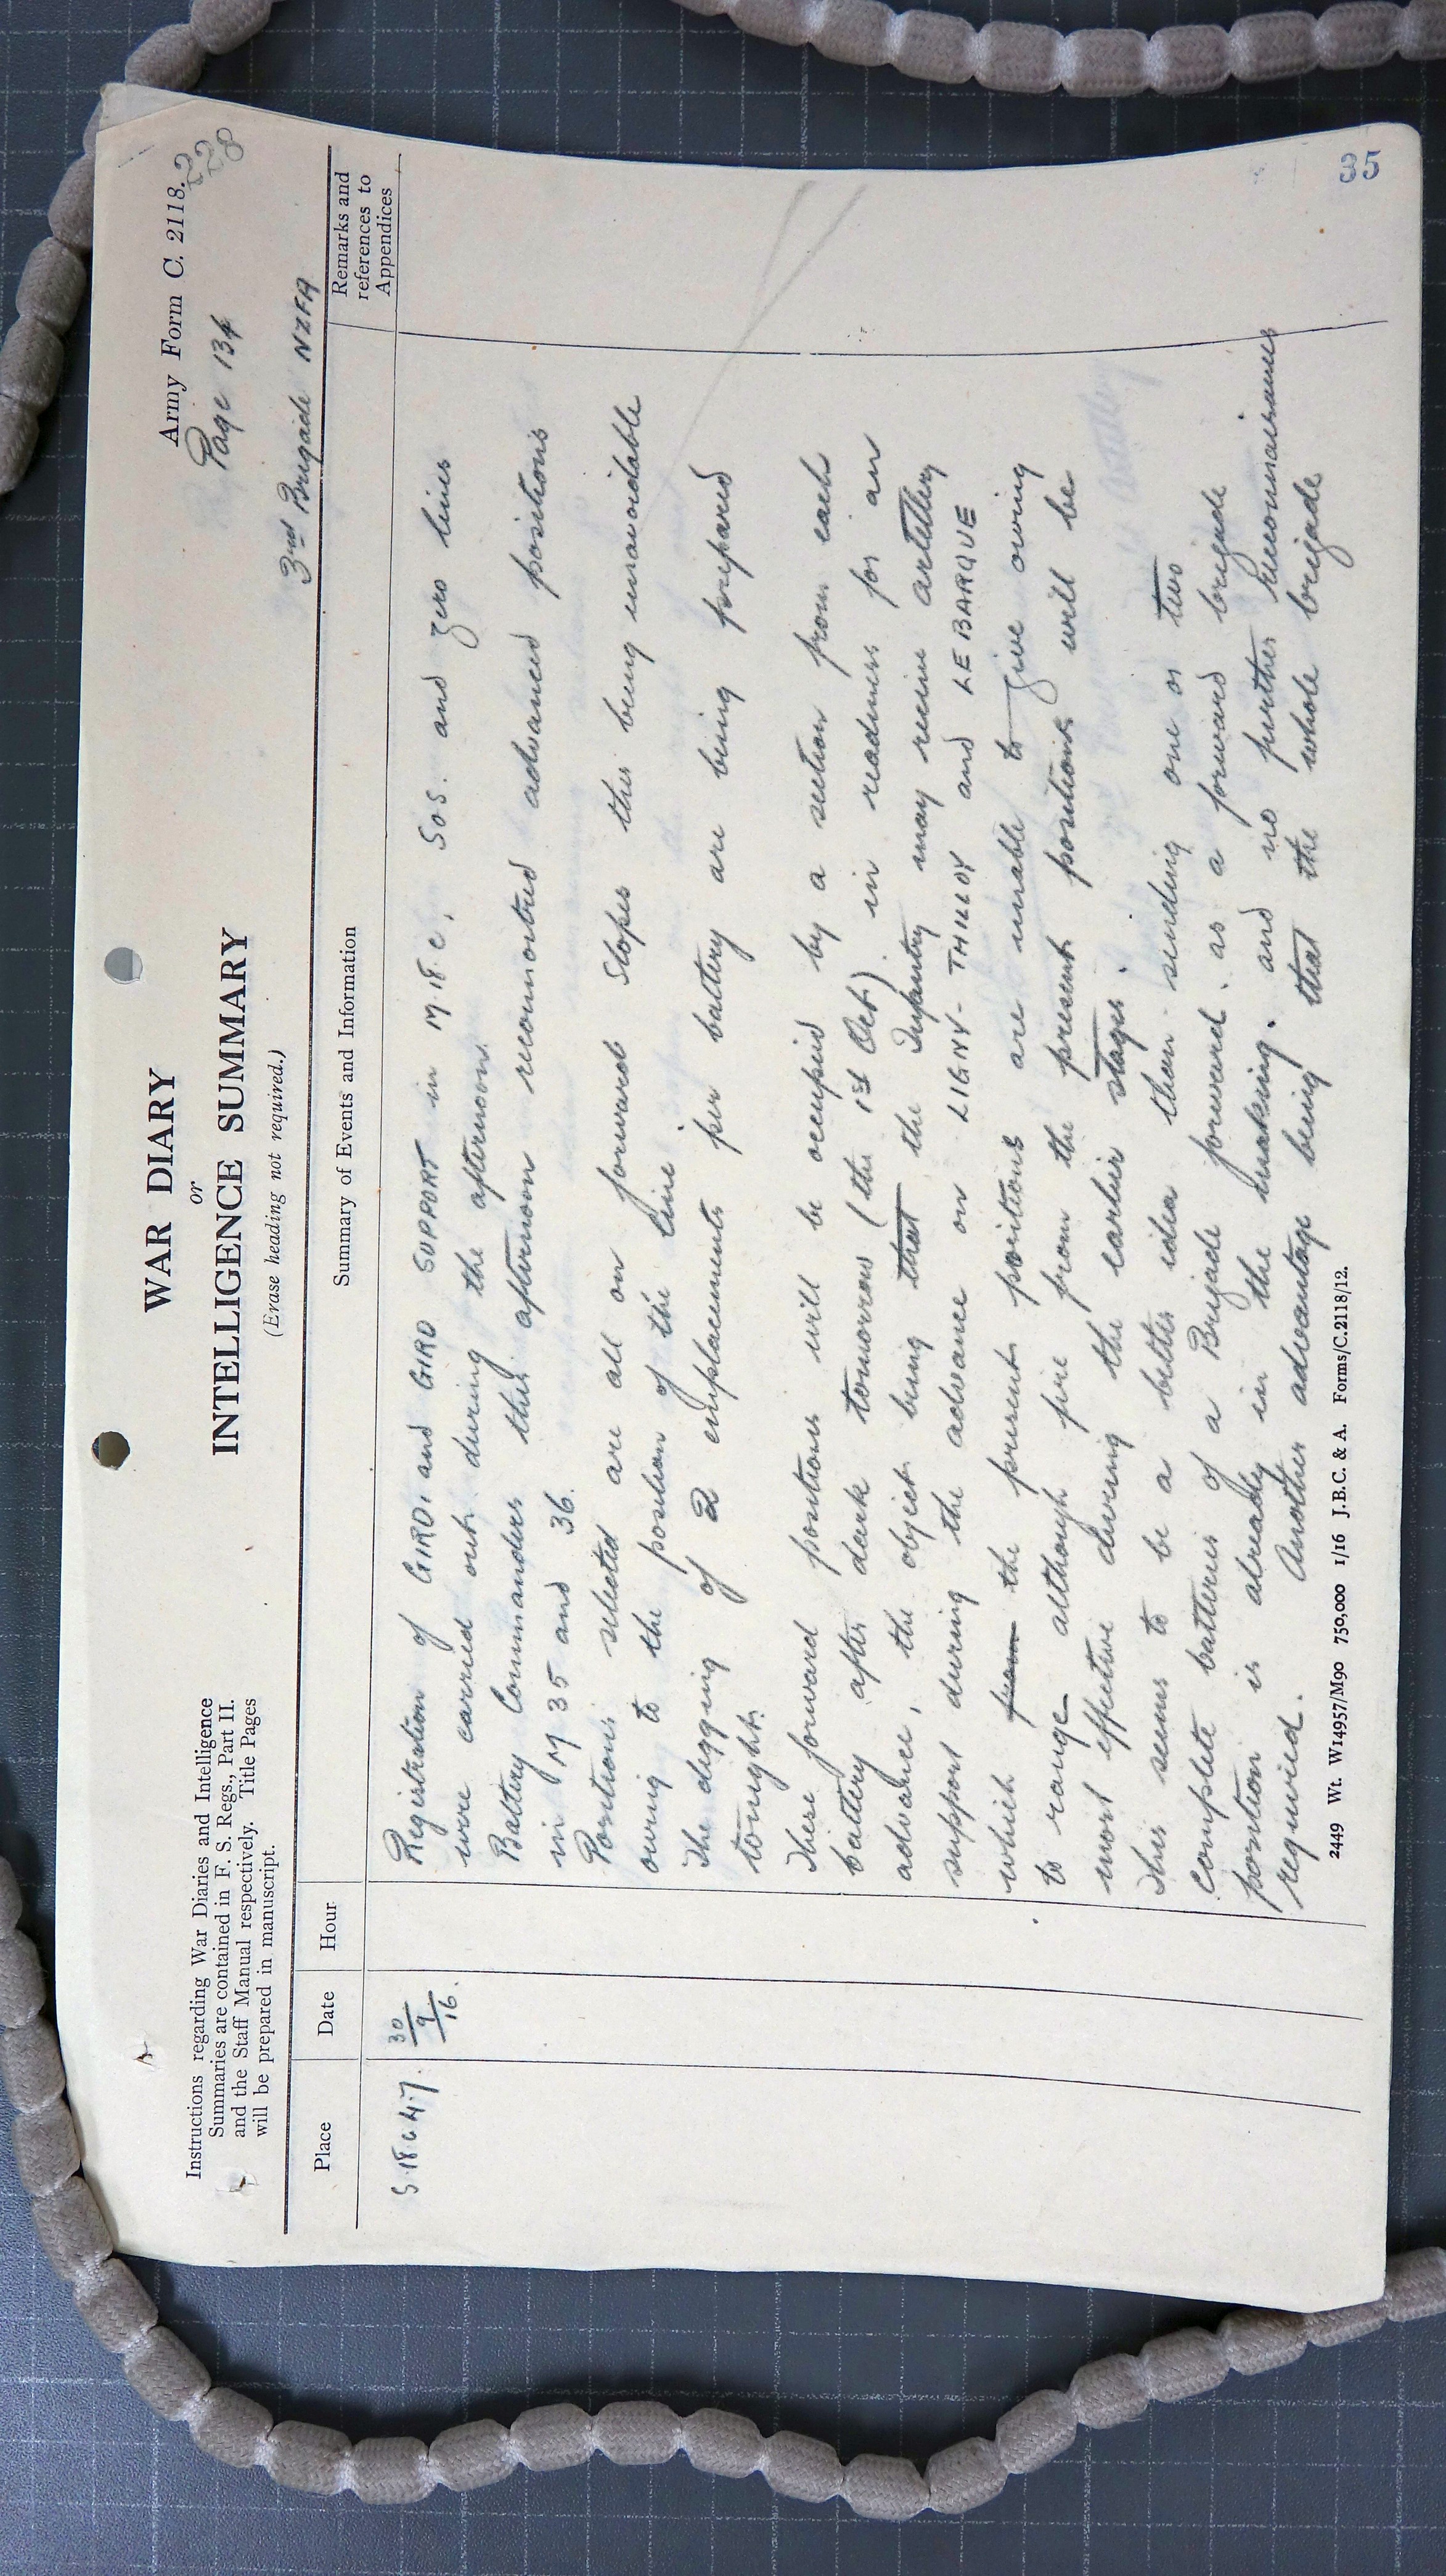 Army Form C. 2118.
228
Page 134
3rd Brigade NZFA
WAR DIARY
or
INTELLIGENCE SUMMARY
(Erase heading not required.)
Instructions regarding War Diaries and Intelligence
Summaries are contained in F. S. Regs., Part II.
and the Staff Manual respectively. Title Pages
will be prepared in manuscript.
Place
Date
Hour
Summary of Events and Information
Remarks and
references to
Appendices
S.18.c.4.7.
30/9/16.
Registration of GIRD, and GIRD SUPPORT in M.18.c, SOS. and zero lines
were carried out during the afternoon.
Battery Commanders this afternoon reconnoitred advanced positions
in M 35 and 36.
Positions selected are all on forward slopes this being unavoidable
owing to the position of the line.
The digging of 2 emplacements per battery are being prepared
tonight.
These forward positions will be occupied by a section from each
battery after dark tomorrow (the 1st Oct). in readiness for an
advance, the object being that the Infantry may receive artillery
support during the advance on LIGNY-THILLOY and LE BARQUE
which from the present positions are unable to give owing
to range although fire from the present positions will be
most effective during the earlier stages.
This seems to be a better idea than sending one or two
complete batteries of a Brigade forward. as a forward brigade
position is already in the making. and no further reconnaissances
required. Another advantage being that the whole brigade
2449 Wt. W14957/M90 750,000 1/16 J.B.C. & A. Forms/C.2118/12.
35